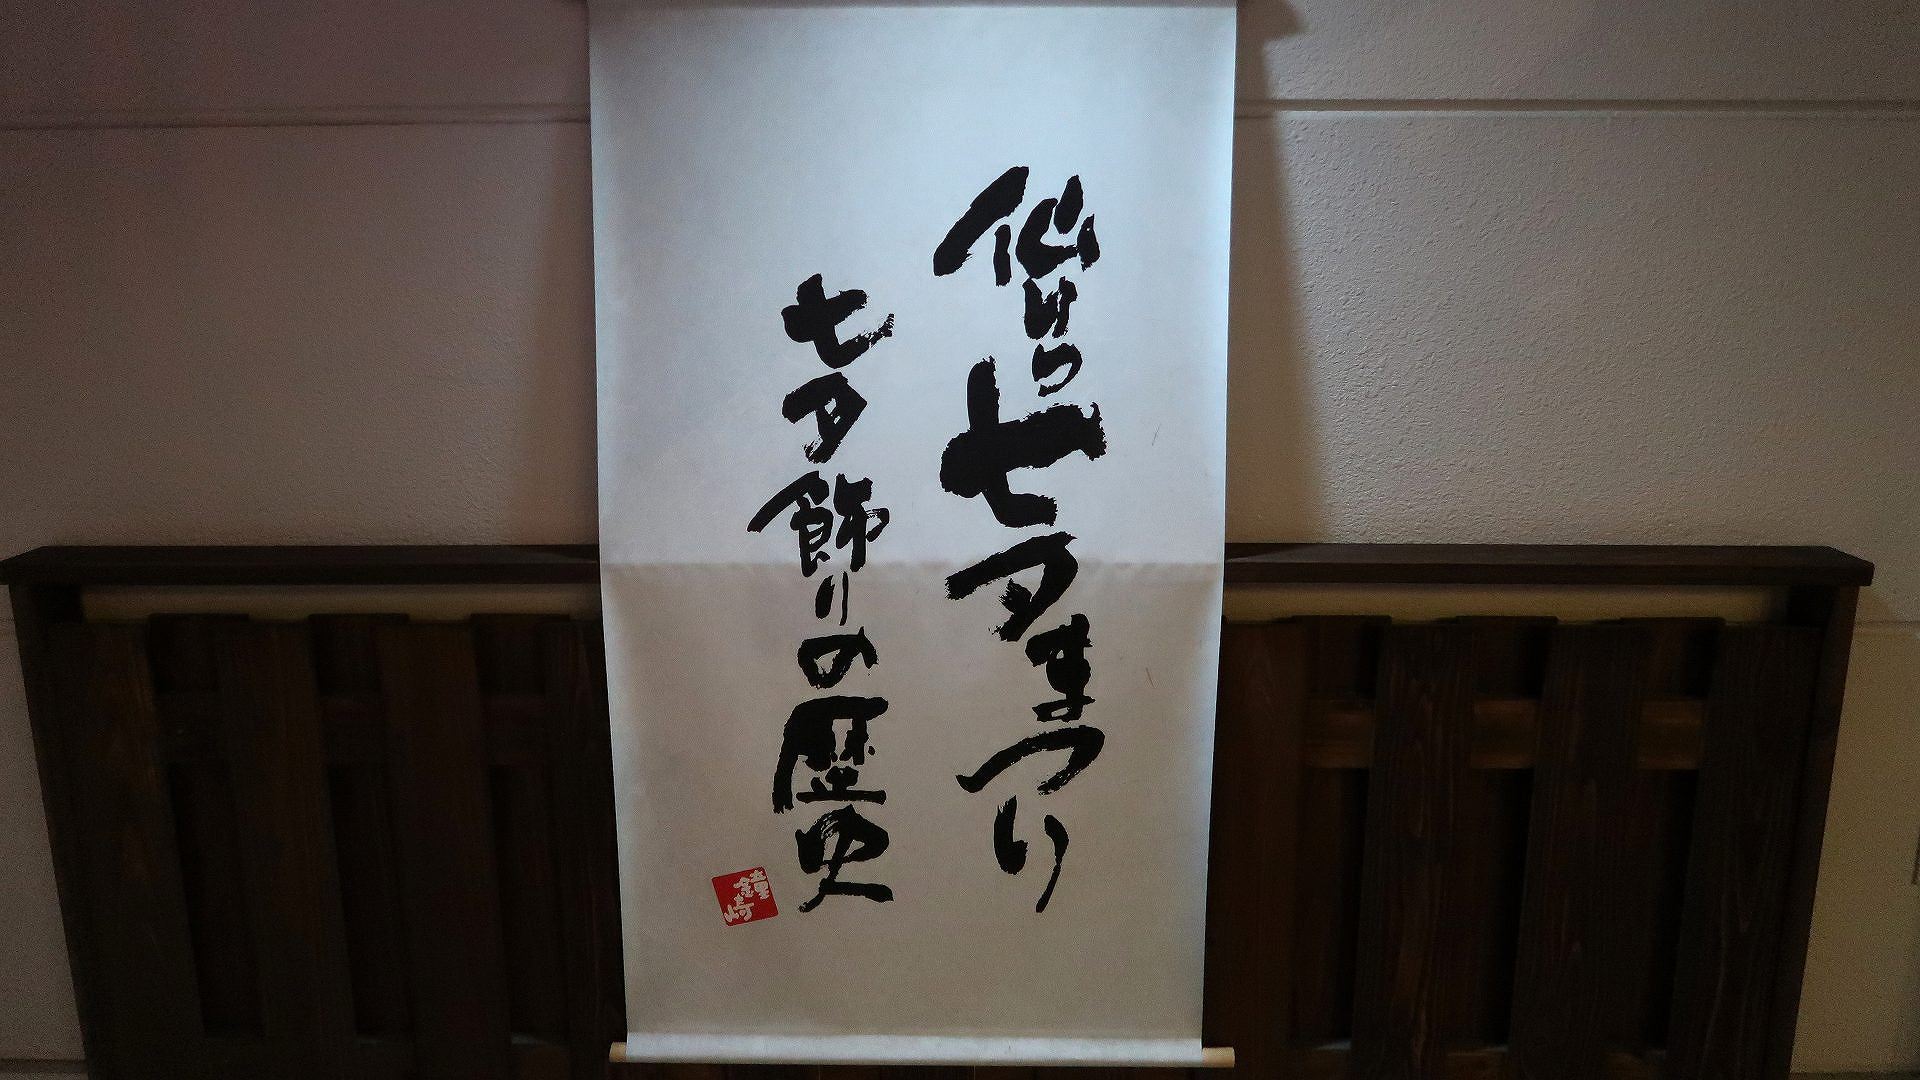 仙台七夕まつり
七夕飾りの歴史
鐘崎